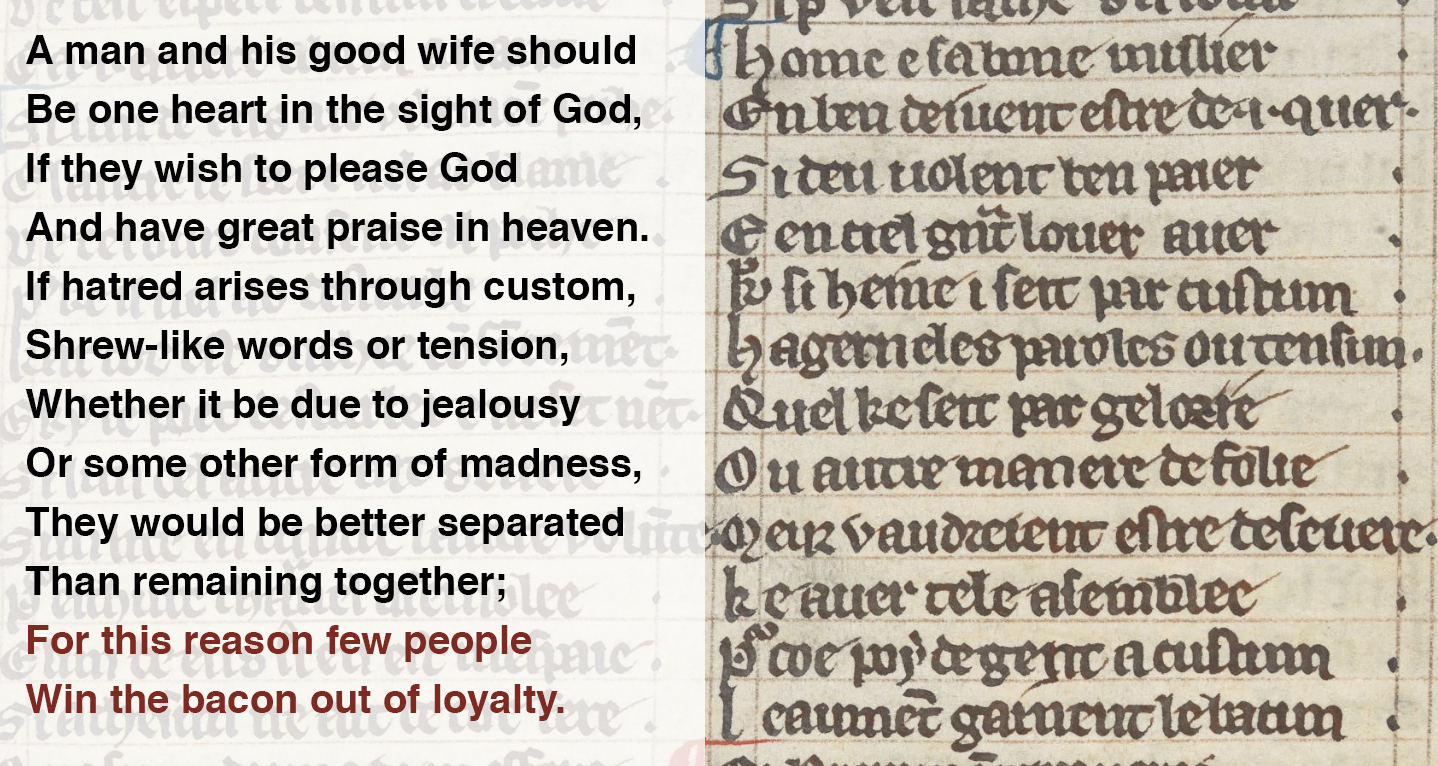 A man and his good wife should
Be one heart in the sight of God,
If they wish to please God
And have great praise in heaven.
If hatred arises through custom,
Shrew-like words or tension,
Whether it be due to jealousy
Or some other form of madness,
They would be better separated
Than remaining together;
For this reason few people
Win the bacon out of loyalty.
home e sa bone muilier
En ben deiuent estre de a · quer ·
Si deu uolent ben paier
E en ciel gnt louer auer
k si heine i seit par custum
hagern eles paroles ou tensun ·
Quel ke seit par gelozie
Ou autre manere de folie
Meuz vaudreient estre deseuere ·
ke auer tele asemblee
coe de gent a custum
leaument gainent le bacun